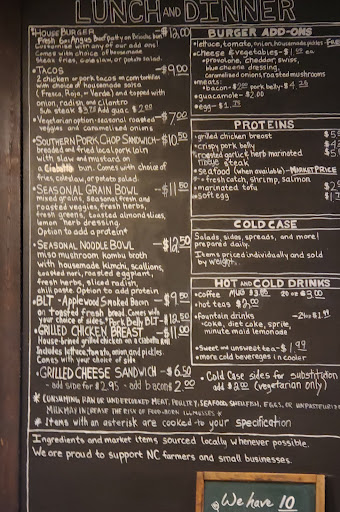 LUNCH AND DINNER
*HOUSE BURGER $12.00
Fresh 6oz Angus Beef patty on Brioche bun
Customized with any of our add ons!
Comes with choice of housemade
Steak fries, coleslaw, or potato salad.
*TACOS $9.00
2 chicken or pork tacos on corn tortillas
with choice of housemade salsa
(Fresca, Roja, or Verde) and topped with
onion, radish and cilantro
Sub steak $3.75 Add guac $2.00
•Vegetarian option- seasonal roasted $7.00
veggies and caramelised onions
•SOUTHERN PORK CHOP SANDWICH- $10.50
breaded and fried local pork loin
with slaw and mustard on
a Ciabatta bun. Comes with choice of
fries, coleslaw, or potato salad.
•SEASONAL GRAIN BOWL -$11.50
mixed grains, seasonal fresh and
roasted veggies, fresh herbs,
fresh greens, toasted almond slices,
lemon herb dressing.
Option to add a protein!
•SEASONAL NOODLE BOWL -$12.50
miso mushroom kombu broth
with housemade kimchi, scallions,
toasted nori, roasted eggplant,
fresh herbs, sliced radish,
chili paste. Option to add protein
•BLT - Applewood Smoked Bacon -$9.50
on toasted fresh bread. Comes with
your choice of sides. *Pork Belly BLT -$12.50
•GRILLED CHICKEN BREAST -$11.00
House-brined grilled chicken on a Ciabatta bun
Includes lettuce, tomato, onion, and pickles.
Comes with your choice of side
•GRILLED CHEESE SANDWICH -$6.50
-add side for $2.95 -add bacon $2.00
* CONSUMING RAW OR UNDERCOOKED MEAT, POULTRY, SEAFOOD, SHELLFISH, EGGS, OR UNPASTEURIZED
MILK MAY INCREASE THE RISK OF FOOD-BORN ILLNESSES *
* Items with an asterisk are cooked to your specification
Ingredients and market items sourced locally whenever possible.
We are proud to support NC farmers and small businesses.
BURGER ADD-ONS
•lettuce, tomato, onion, housemade pickles -
•cheese & vegetables - $1 ea
•provolone, cheddar, swiss,
blue cheese dressing,
caramelised onions, roasted mushrooms
•meats:
•bacon - $2.00 pork belly - $4.75
•guacamole - $2.00
•egg - $1.75
PROTEINS
•grilled chicken breast $5
•crispy pork belly $4
•roasted garlic & herb marinated $5
steak
•seafood (when available) - MARKET PRICE
•fresh catch, shrimp, salmon
•marinated tofu $2
•soft egg $1
COLD CASE
Salads, sides, spreads, and more!
prepared daily.
Items priced individually and sold
by weight.
HOT AND COLD DRINKS
•coffee MUG $3.00 20 oz $3.00
•hot teas $2.00
•fountain drinks - 24oz $1.99
•coke, diet coke, sprite,
minute maid lemonade
•Sweet and unsweet tea - $1.99
•more cold beverages in cooler
•Cold Case sides for substitution
add $2.00 (vegetarian only)
We have 10